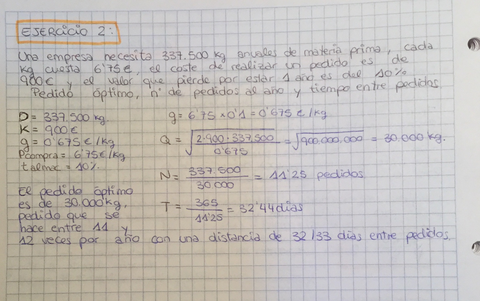 EJERCICIO 2:
Una empresa necesita 337.500 kg anuales de materia prima, cada
kg cuesta 6'75€, el coste de realizar un pedido es de
900€ y el valor que pierde por estar 1 año es del 10%
Pedido óptimo, nº de pedidos al año y tiempo entre pedidos.
D= 337.500 kg
g= 6'75 x 0'1 = 0'675 €/kg
K= 900€
g= 0'675 €/kg
Q = √(2·900·337.500 / 0'675) = √900.000.000 = 30.000 kg.
Pcompra= 6'75€/kg
talmac= 10%
N= 337.500 / 30.000 = 11'25 pedidos
El pedido óptimo
es de 30.000 kg,
T= 365 / 11'25 = 32'44 días
pedido que se
hace entre 11 y
12 veces por año con una distancia de 32/33 días entre pedidos.